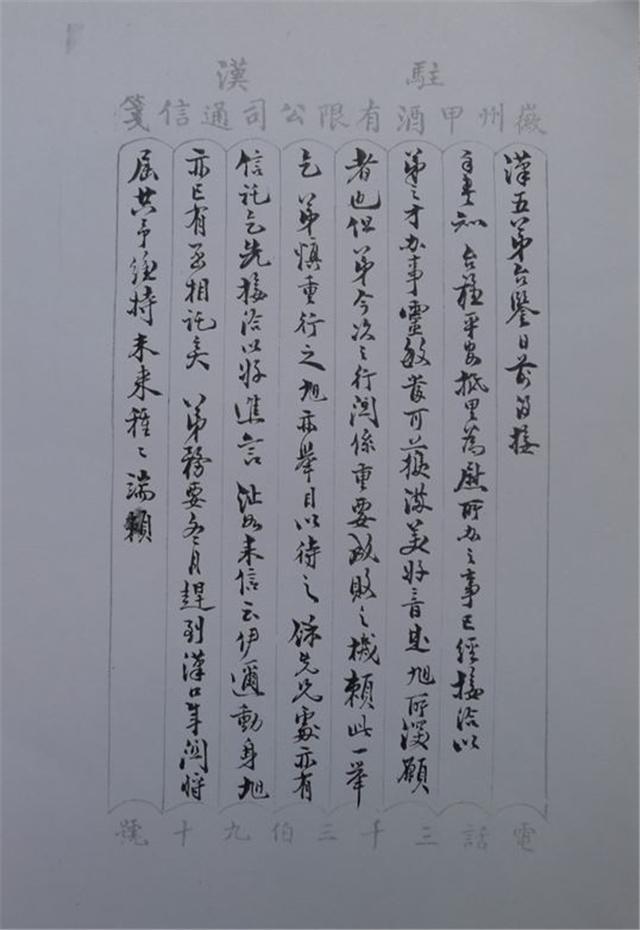 駐漢
徽州甲酒有限公司通信箋
漢五弟台鑒日前接
手書知 台程平安抵里為慰所办之事已經接洽以
弟之才办事靈敏當可獲滿美好音是旭所深願
者也但弟今次之行関係重要成敗之機賴此一舉
乞 弟慎重行之旭亦舉目以待之 先兄處亦有
信託乞先接洽以好進言 來信云伊邇動身旭
亦已有函相託矣 弟務要冬月趕到漢口年関將
屆共予維持未來種々端賴
電話三千三伯九十號